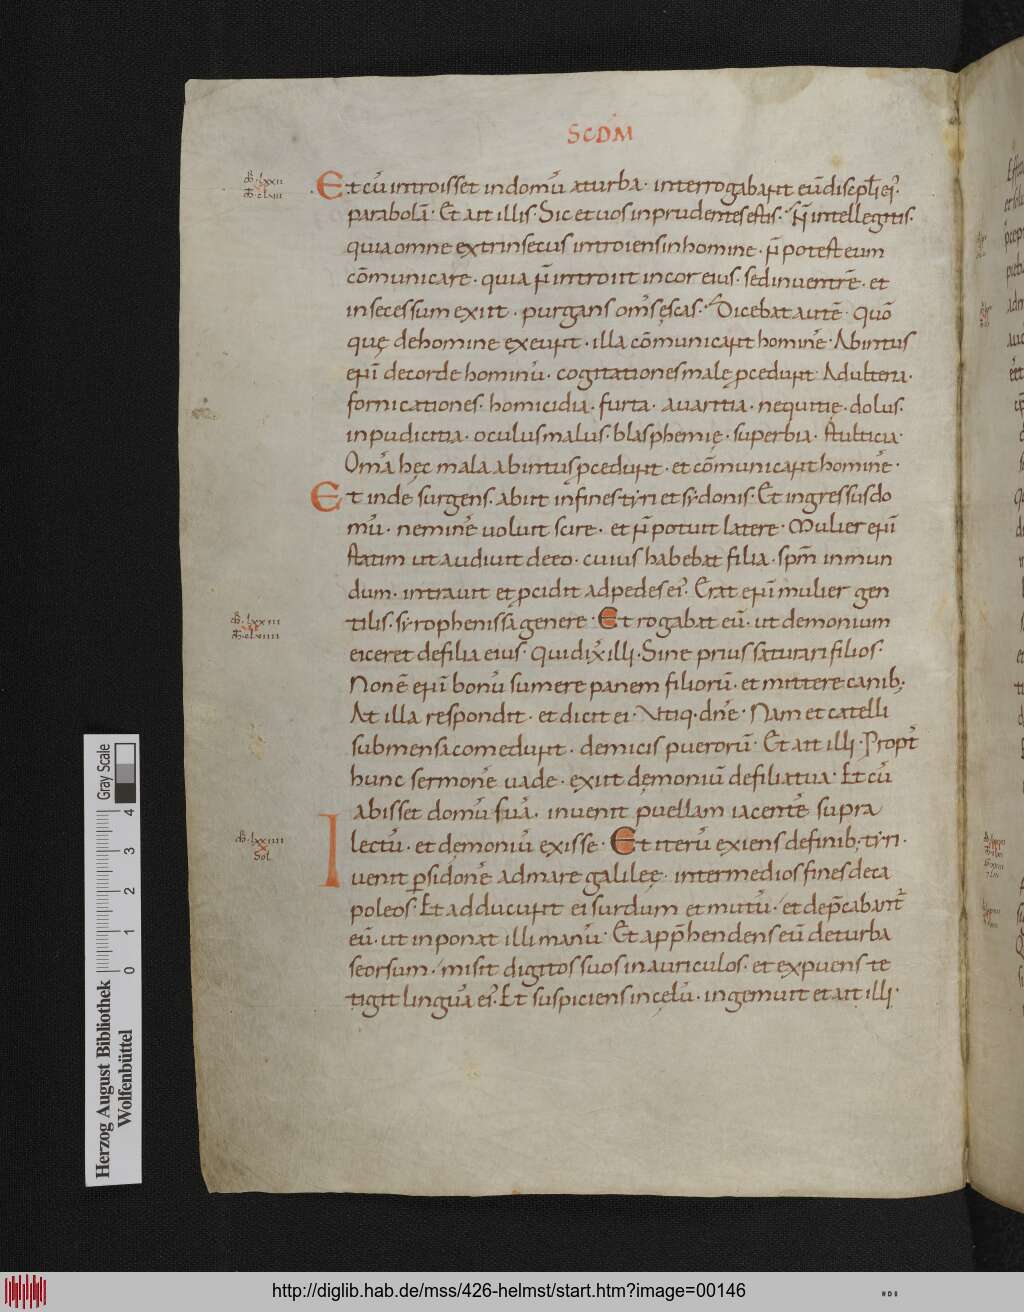 SCDM
Et cū introisset in domū aturba· interrogabant eūdiscipłi ei᾽·
parabolā· Et ait illis· Sic et uos inprudentesestis· N̄ intellegitis·
quia omne extrinsecus introiensinhomine· n̄ potest eum
cōmunicare· quia n̄ introiit incor eius· sedinuentrē· et
insecessum exiit· purgans om̄s ęscas· Dicebat autē quō
quę dehomine exeunt· illa cōmunicant hominē· Abintus
enī decorde hominū· cogitationesmalę ꝓcedunt Adulteria·
fornicationes· homicidia· furta· auaritia· nequitię· dolus·
inpudicitia· oculusmalus· blasphemię· superbia· stulticia·
Om̄a hęc mala abintusꝓcedunt· et cōmunicant hominē·
Et inde surgens· abiit in finestyri et sydonis· Et ingressusdo
mū· neminē uoluit scire· et n̄ potuit latere· Mulier enī
statim ut audiuit deeo· cuius habebat filia· spm̄ inmun
dum· intrauit et ꝓcidit adpedesei᾽· Erat enī mulier gen
tilis· syrophenissa genere· Et rogabat eū· ut demonium
eiceret defilia eius· Qui dix̄ illi· Sine prius saturari filios·
Non ē enī bonū sumere panem filiorū· et mittere canib;·
At illa respondit· et dicit ei· Utiq· dn̄e· Nam et catelli
submensa comedunt· demicis puerorū· Et ait illi· Propt̄
hunc sermonē uade· exiit dęmoniū defiliatua· Et cū
abisset domū suā· inuenit puellam iacentē supra
lectū· et dęmoniū exisse· Et iterū exiens definib; tyri·
Iuenit ꝑsidonē admare galileę· intermediosfinesdeca
poleos· Et adducunt ei surdum et mutū· et dep̄cabant᾽
eū· ut inponat illi manū· Et app̄hendens eū deturba
seorsum· misit digitos suos inauriculos· et expuens te
tigit linguā ei᾽· Et suspiciens in cęlū· ingemuit et ait illi·
Gray Scale
0 1 2 3 4
Herzog August Bibliothek
Wolfenbüttel
http://diglib.hab.de/mss/426-helmst/start.htm?image=00146